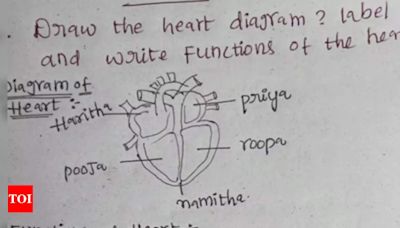 . Draw the heart diagram? label
and write functions of the hea
Diagram of
Heart :-
Haritha
priya
roopa
pooja
namitha.
TOI